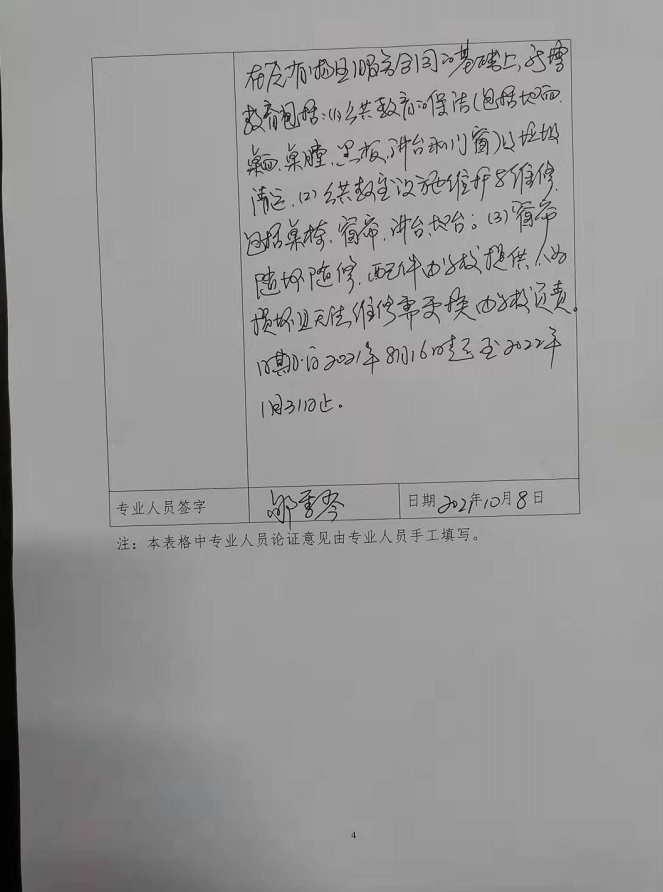 在原有物业服务合同的基础上,新增
教育包括:(1)公共教育的保洁(包括地面、
桌面、桌膛、黑板、讲台和门窗)及垃圾
清运、(2)公共教室设施维护与维修,
包括桌椅、窗帘、讲台、地台;(3)窗帘
随坏随修,配件由学校提供,人为
损坏且无法维修需更换由学校负责。
日期:自2021年8月16日起至2022年
1月31日止。
专业人员签字
日期 2021年10月8日
注:本表格中专业人员论证意见由专业人员手工填写。
4